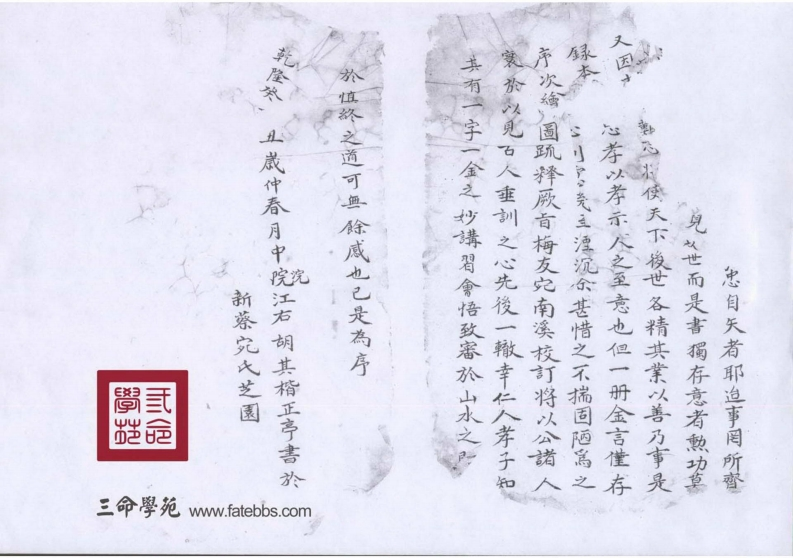 忠自矢者耶迨事罔所齊
見世而是書獨存意者勲功草
將使天下後世各精其業以善乃事是
心孝以孝示人之至意也但一册金言僅存
又因
録本
湮沉余甚惜之不揣固陋為之
序次繪圖疏釋厥旨梅友宛南溪校訂將以公諸人
寰於以見百人垂訓之心先後一轍幸仁人孝子知
其有一字一金之妙講習會悟致審於山水之
於慎終之道可無餘感也已是為序
乾隆
丑歲仲春月中浣江右胡其楷正亭書於
院
新蔡宛氏芝園
三命學苑
三命學苑 www.fatebbs.com